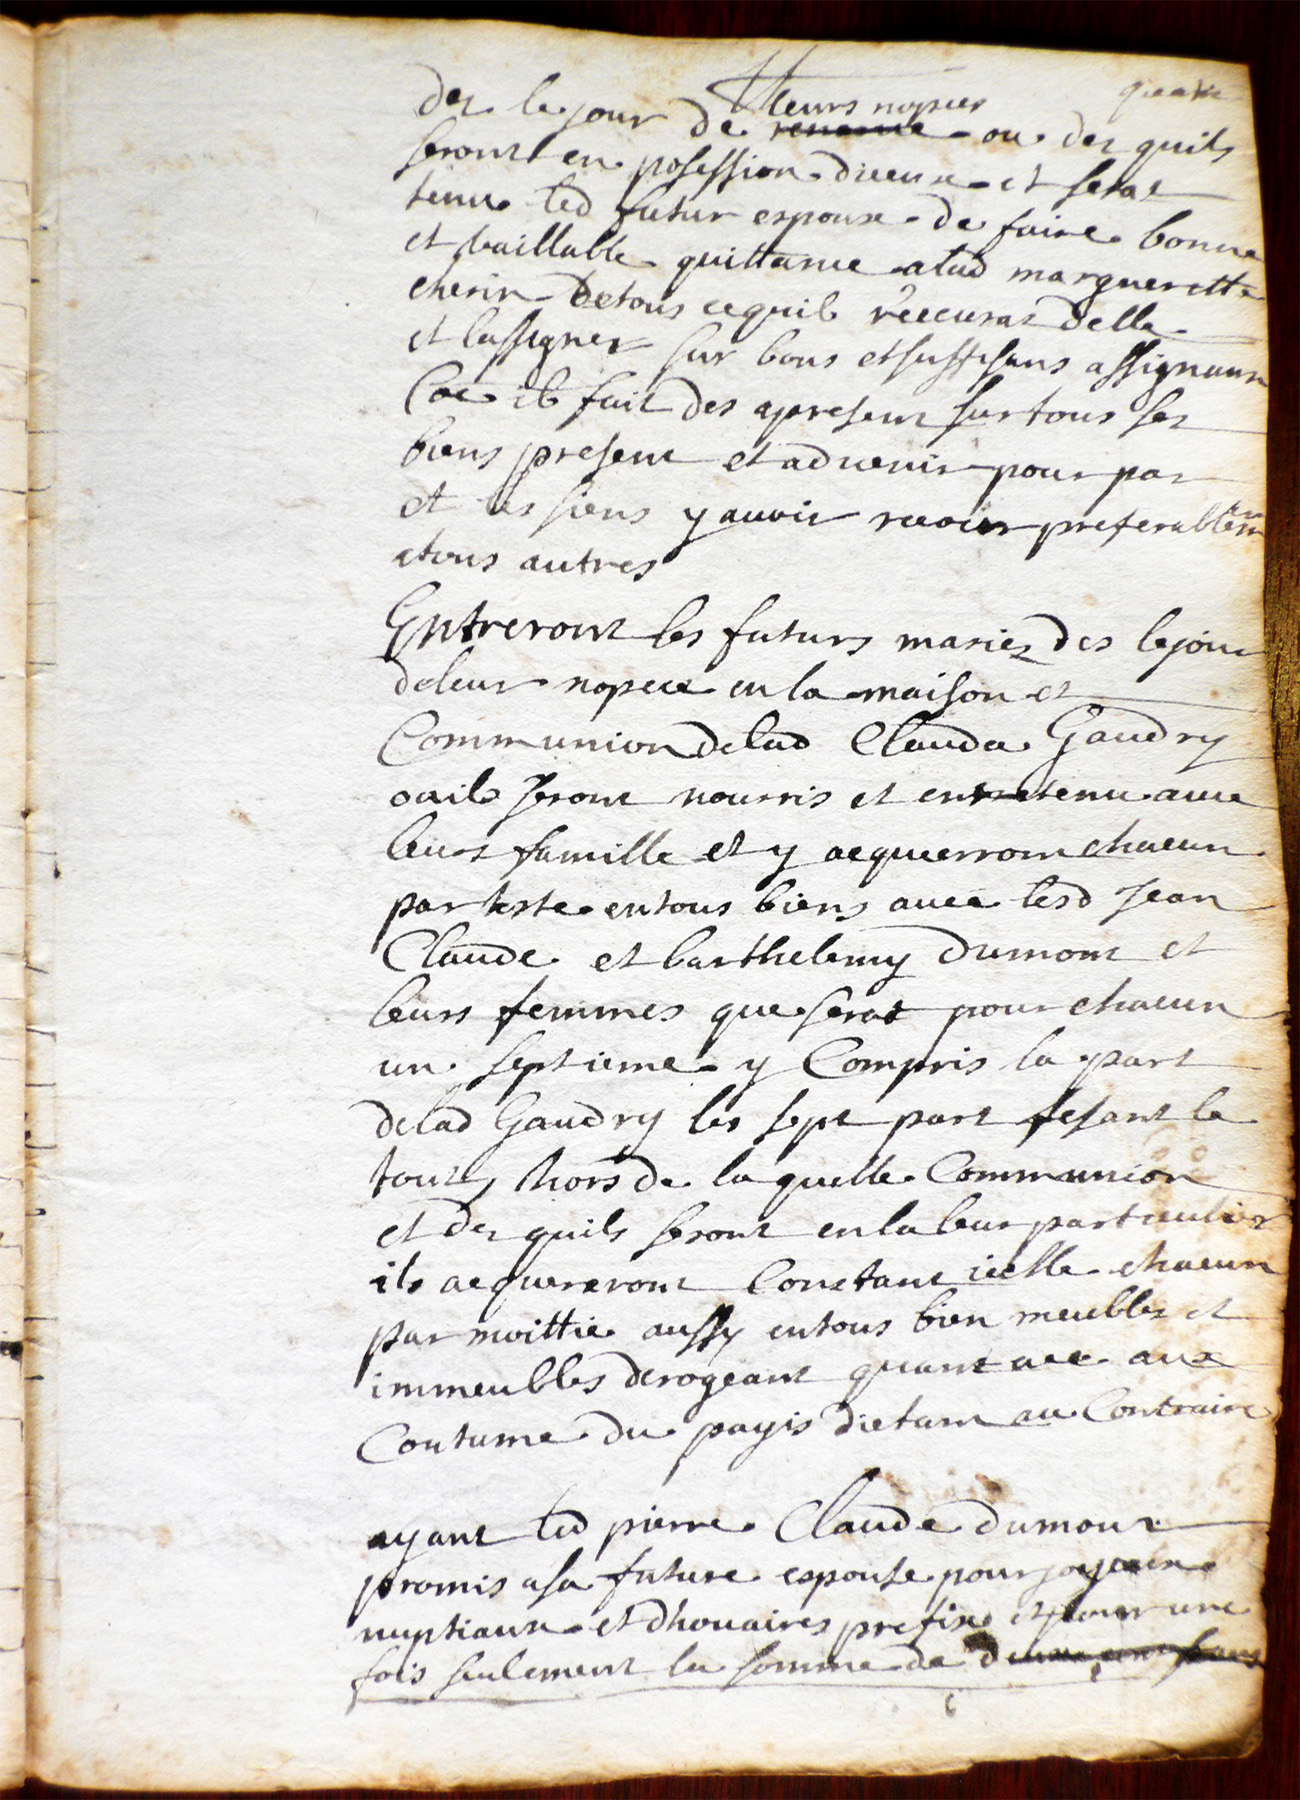 quatre
leurs nopces
dez le jour de ou dez quils
seront en posession dieeux et serat
tenu led futur espoux de faire bonne
et vaillable quittance alad marguerette
cherin de tous cequil reccurat delle
et lassigner sur bons et suffisans assignaux
Coe il fait des apresent sur tous ses
biens present et advenir pour par
et les siens y avoir recour preferablem
atous autres
Entreront les futurs mariez des le jour
de leur nopce en la maison et
Communion delad Clauda Gaudry
ouils seront nourris et entretenu avec
leurs famille et y acquierront chacun
par teste en tous biens avec lesd Jean
Claude et barthelemy Dumont et
leurs femmes que serat pour chacun
un septieme y Compris la part
delad Gaudry les sept part fesant le
tout, hors de la quelle Communion
et dez quils seront en la leur particulier
ils acquereront Constant icelle chacun
par moittie aussy en tous bien meubles et
immeubles derogeant quant ace aux
Coutume du payis dictant au Contraire
ayant led pierre Claude dumont
promis asa future espouse pour joyaux
nuptiaux et dhouaires prefix et pour une
fois seulement la somme de